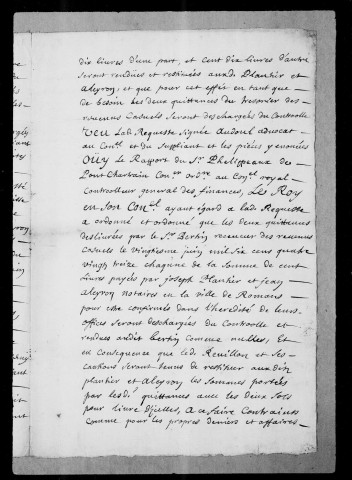 dix livres d'une part, et cent dix livres d'autre
seront rendües et restituées ausd. Plantier et
Aleyron, et que pour cet effet en tant que
de besoin les deux quittances du tresorier des
revenus Casuels seront deschargées du Controlle
Veu Lad. Requeste signée Audoul advocat
au Con.el et du Supliant et les pieces y enoncées
Ouy le Raport du S.r Phelippeaux de
Pontchartrain Con.er ord.re au Con.el royal
Controlleur general des finances, Le Roy
en son Con.el ayant égard a lad. Requeste
a ordonné et ordonne que les deux quittances
deslivrées par le S.r Bertin receveur des revenus
casuels le vingtiesme juin mil six cens quatre
vingt treize chacune de la somme de cent
livres payées par Joseph Plantier et Jean
Aleyron notaires en la ville de Romans
pour estre confirmés dans l'heredité de leurs
offices seront deschargées du Controlle et
rendues audit Bertin comme nulles, et
en consequence que led. Revillon et ses
cautions seront tenus de restituer ausdits
plantier et Aleyron, les sommes portées
par lesd. quittances avec les deux sols
pour livre d'jcelles, a ce faire Contraints
comme pour les propres deniers et affaires